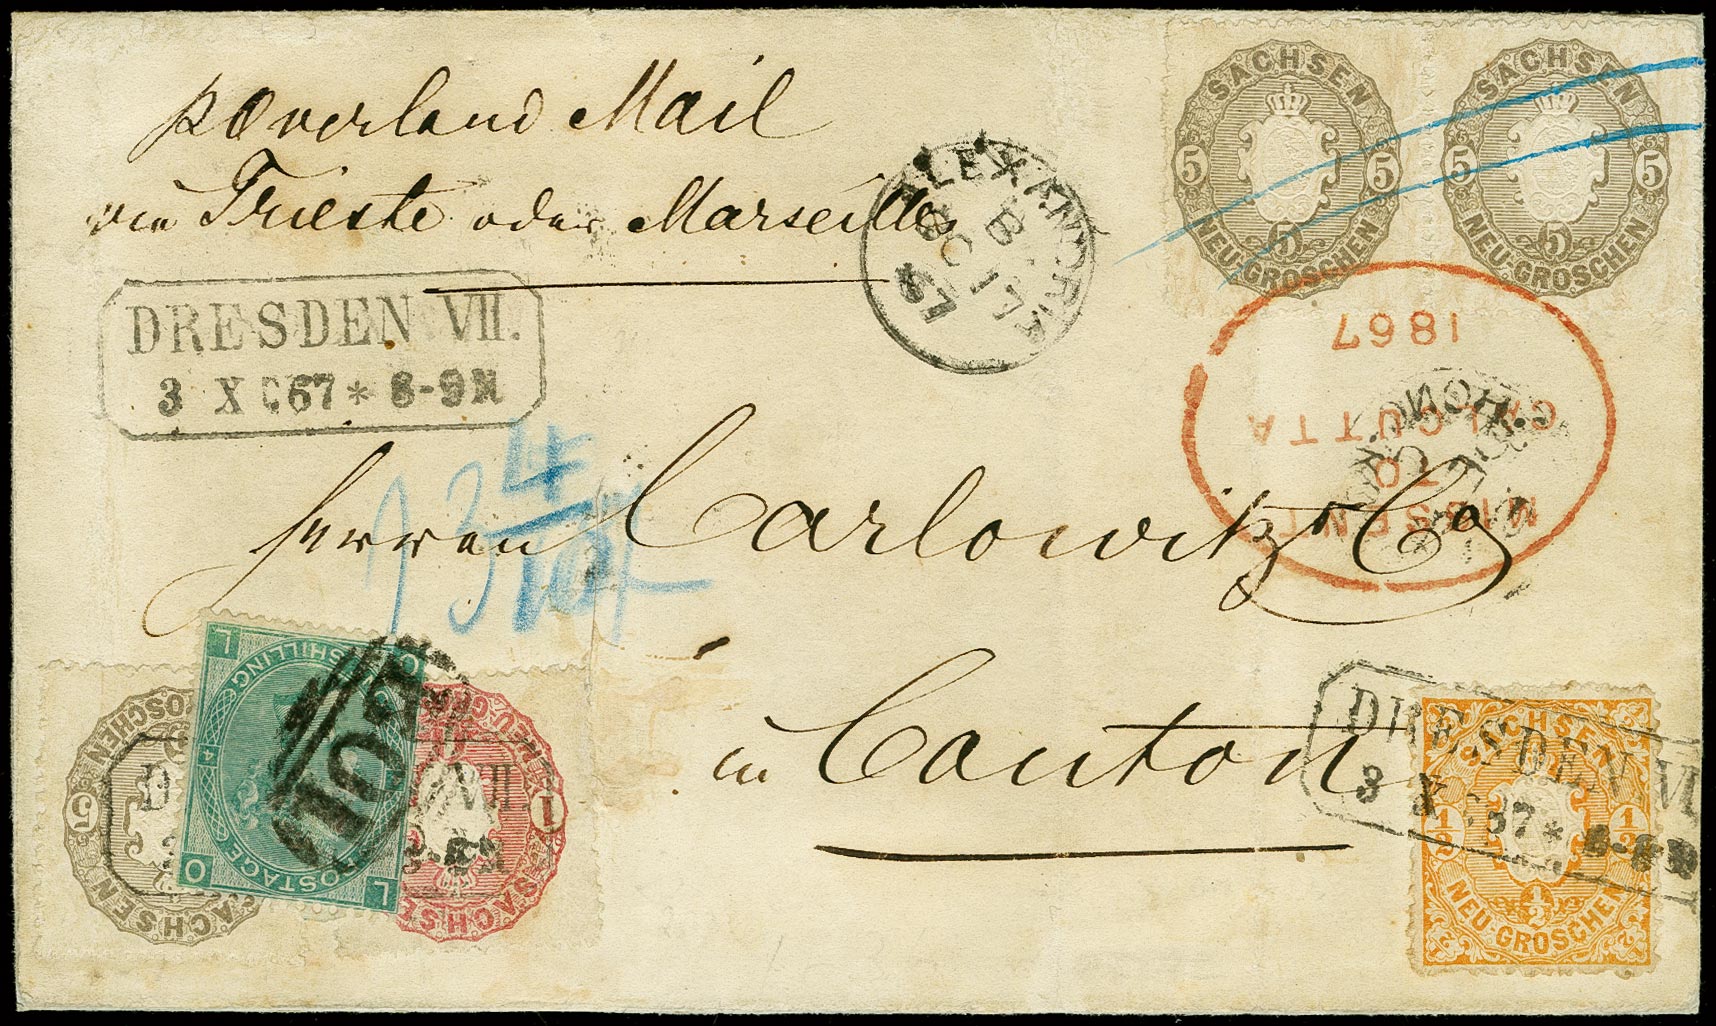 p Overland Mail
via Trieste oder Marseille
ALEXANDRIA
B
OC 17
67
SACHSEN
5 5
5
NEU-GROSCHEN
SACHSEN
5 5
5
NEU-GROSCHEN
DRESDEN VII.
3 X 67 * 8-9 N
MISSENT
TO
CALCUTTA
1867
HONG
4
Herren Carlowitz & Co
in Canton
L
SHILLING
POSTAGE
O L
4
5
NEU-GROSCHEN
SACHSEN
1
NEU-GROSCHEN
SACHSEN
VII.
DRESDEN VI
3 X 67 * 8-9 N
SACHSEN
1/2 1/2
1/2
NEU-GROSCHEN